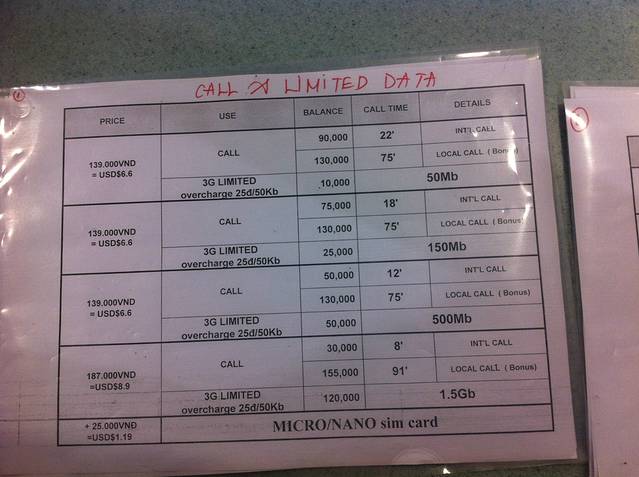 CALL & LIMITED DATA
PRICE USE BALANCE CALL TIME DETAILS
139.000VND
= USD$6.6
CALL 90,000 22' INT'L CALL
130,000 75' LOCAL CALL ( Bonus)
3G LIMITED
overcharge 25đ/50Kb
10,000 50Mb
139.000VND
= USD$6.6
CALL 75,000 18' INT'L CALL
130,000 75' LOCAL CALL ( Bonus)
3G LIMITED
overcharge 25đ/50Kb
25,000 150Mb
139.000VND
= USD$6.6
CALL 50,000 12' INT'L CALL
130,000 75' LOCAL CALL ( Bonus)
3G LIMITED
overcharge 25đ/50Kb
50,000 500Mb
187.000VND
=USD$8.9
CALL 30,000 8' INT'L CALL
155,000 91' LOCAL CALL ( Bonus)
3G LIMITED
overcharge 25đ/50Kb
120,000 1.5Gb
+ 25.000VNĐ
=USD$1.19
MICRO/NANO sim card